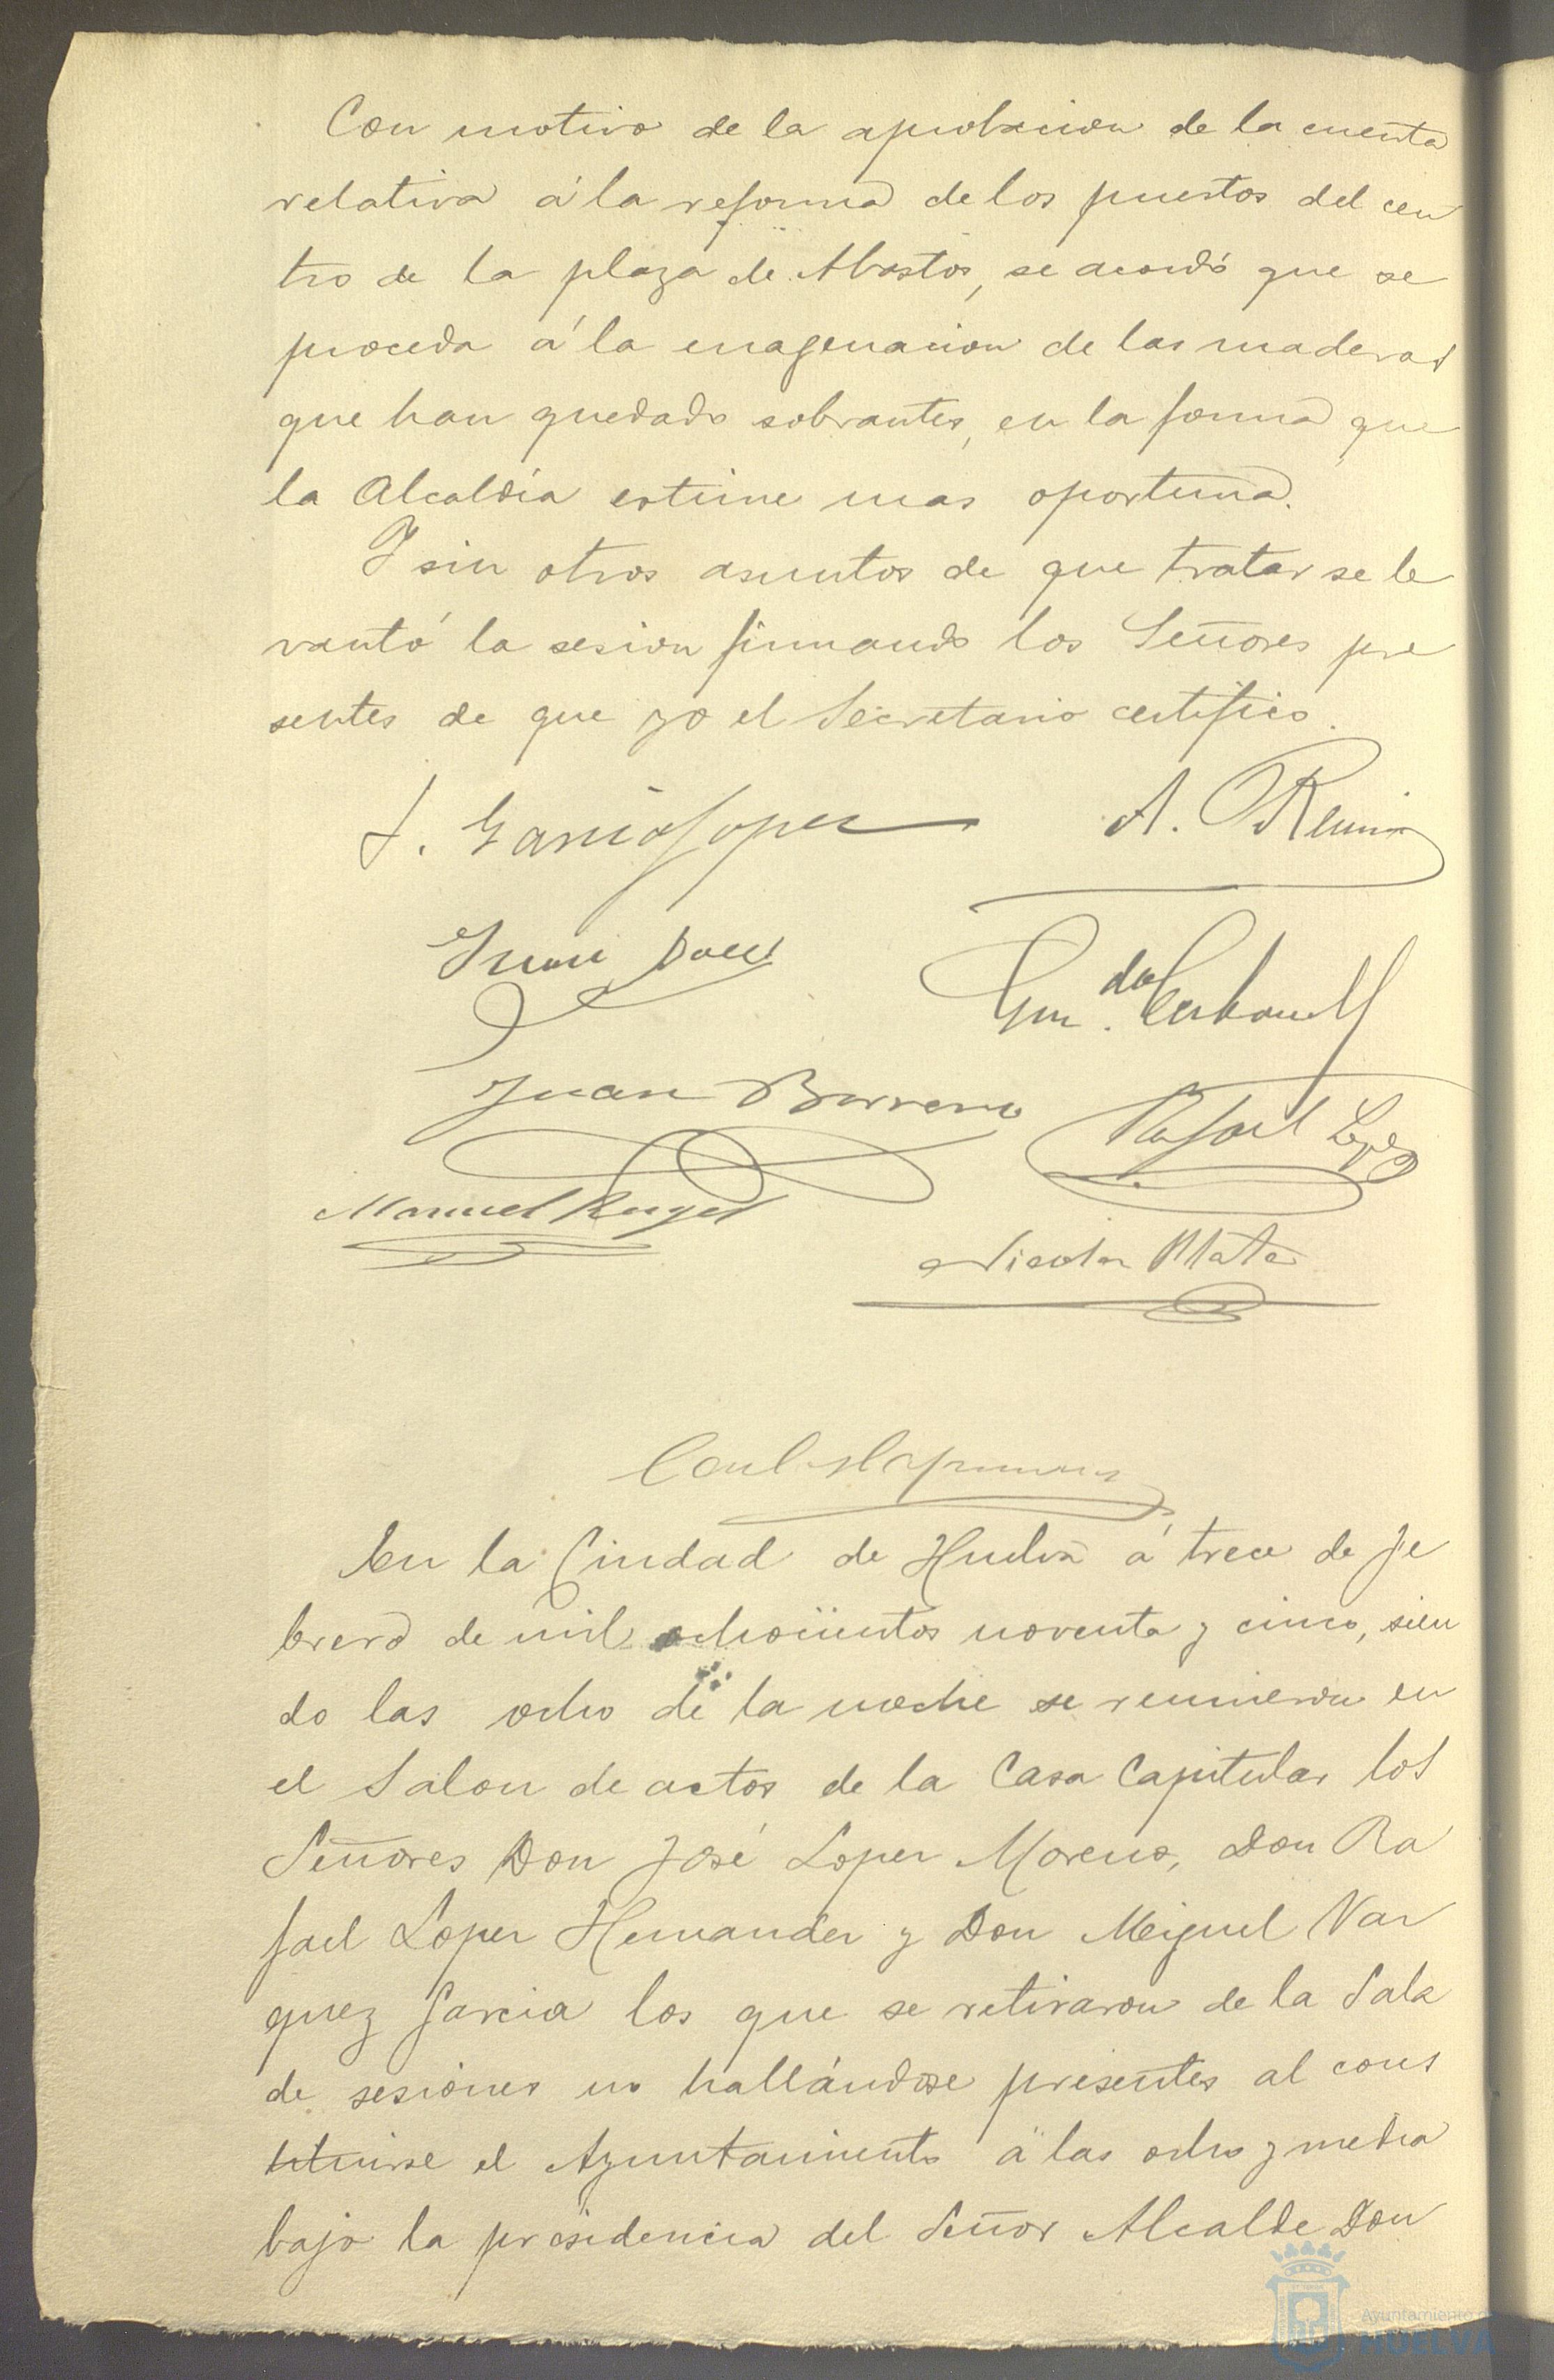 Con motivo de la aprobacion de la cuenta
relativa á la reforma de los puestos del cen
tro de la plaza de Abastos, se acordó que se
proceda á la enagenacion de las maderas
que han quedado sobrantes, en la forma que
la Alcaldia estime mas oportuna.
Y sin otros asuntos de que tratar se le
vantó la sesion firmando los Señores pre
sentes de que yo el Secretario certifico.
J. Garcia Lopez
A.
Juan
Juan Borrero
Rafael Lopez
Manuel
Nicolas Mata
En la Ciudad de Huelva á trece de Fe
brero de mil ochocientos noventa y cinco, sien
do las ocho de la noche se reunieron en
el Salon de actos de la Casa Capitular los
Señores Don José Lopez Moreno, Don Ra
fael Lopez Hernandez y Don Miguel Vaz
quez Garcia los que se retiraron de la Sala
de sesiones no hallándose presentes al cons
tituirse el Ayuntamiento á las ocho y media
bajo la presidencia del Señor Alcalde Don
Ayuntamiento de
HUELVA